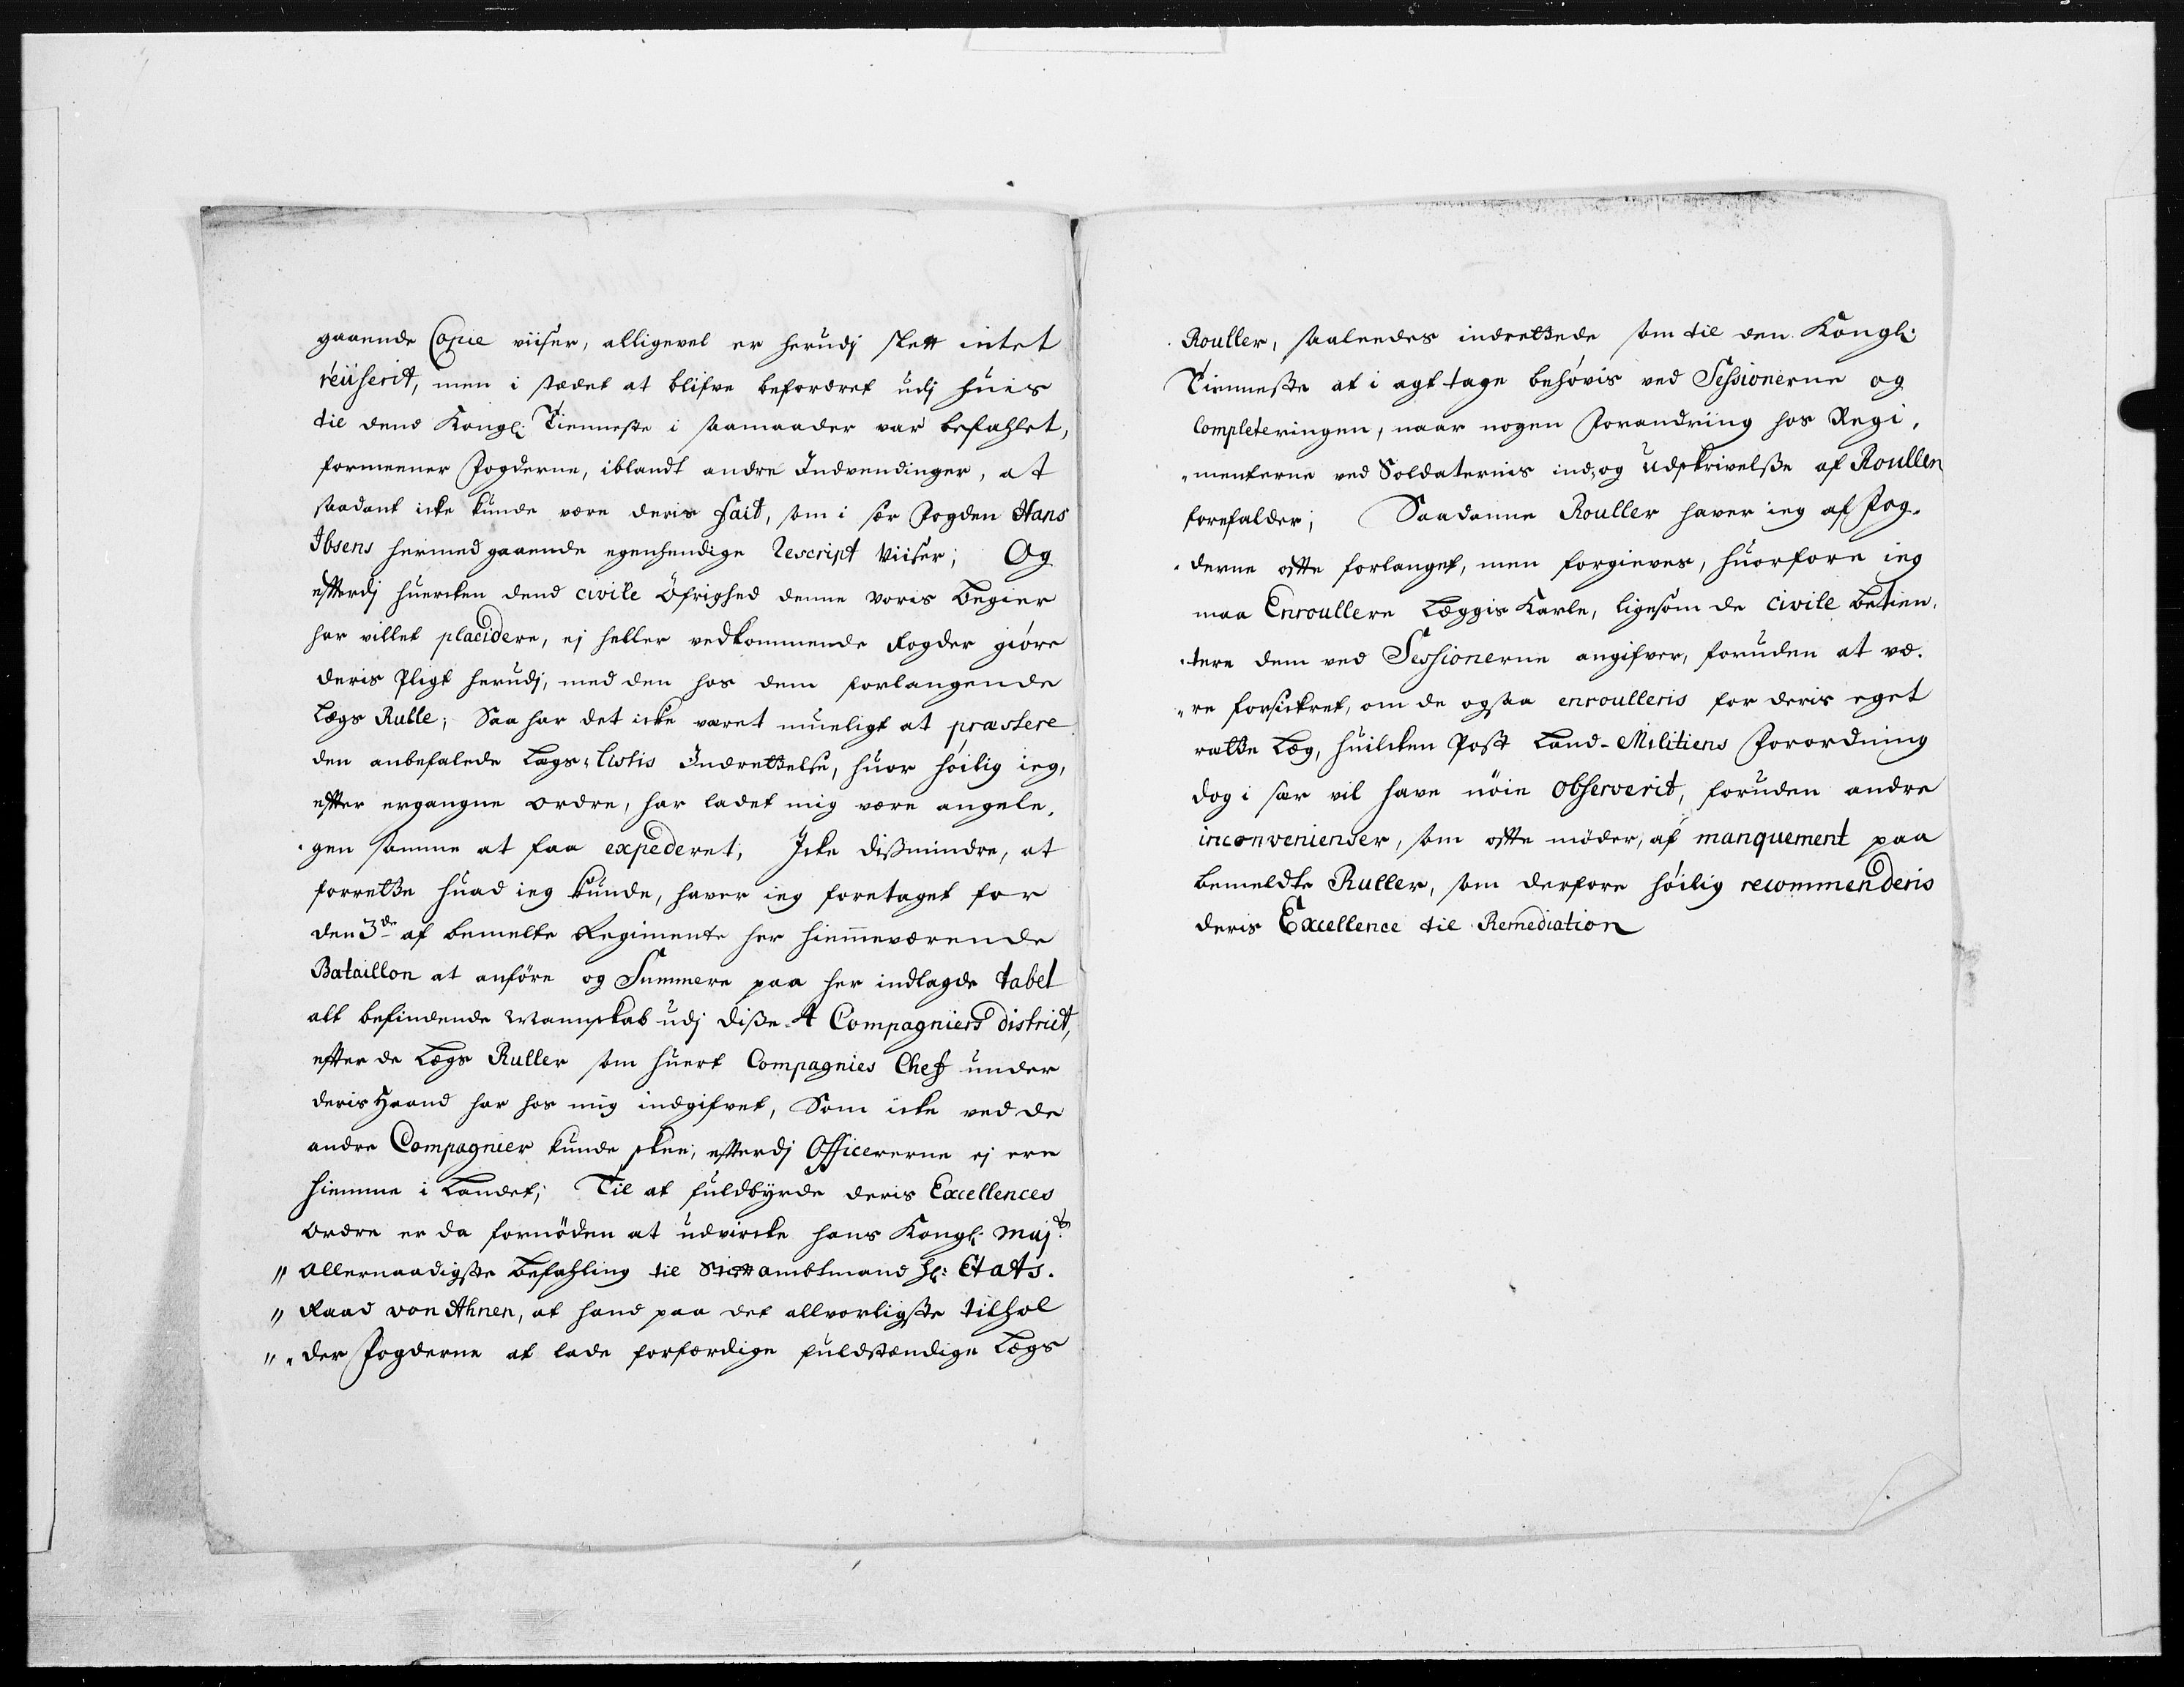 gaaende Copie viiser, alligevel er herudj slett intet
réuserit, men i stædet at blifve befordret udj huis
til dend Kongl: Tienneste i saamaader var befahlet,
formeener Fogderne, iblandt andre Indvendinger, at
saadant icke kunde være deris fait, som i sær Fogden Hans
Ibsens hermed gaaende egenhendige Rescript viiser; Og
efterdj huercken dend civile Öfrighed denne voris Begier
har villet placidere, ej heller vedkommende Fogder giöre
deris Pligt herudj, med den hos dem forlangende
Lægs Rulle; Saa har det icke været mueligt at præstere
den anbefalede Lægs-Listis Indrettelse, huor höilig ieg,
efter ergangne Ordre, har ladet mig være angele,
gen samme at faa expederet; Icke dissmindre, at
forrette huad ieg kunde, haver ieg foretaget for
den 3de af bemelte Regimente her hiemmeværende
Bataillon at anföre og Summere paa her indlagde tabel
alt befindende Mannskab udj disse 4 Compagniers district,
efter de Lægs Ruller som huert Compagnies Chef under
deris Haand har hos mig indgifvet, Som icke ved de
andre Compagnier kunde skee, efterdj Officererne ej ere
hiemme i Landet; Til at fuldbyrde deris Excellences
Ordre er da fornöden at udvircke hans Kongl: Majts
" Allernaadigste Befahling til Stiftambtmand Hr: Etats.
" Raad von Ahnen, at hand paa det allvorligste tilhol
" der Fogderne at lade forfærdige fuldstændige Lægs
Rouller, saaleedes indrettede som til den Kongl:
Tienneste at i agt tage behövis ved Sessionerne og
Completeringen, naar nogen Forandring hos Regi,
menterne ved Soldaternis ind- og Udskrivelsse af Roullen
forefalder; Saadanne Rouller haver ieg af Fog-
derne offte forlanget, men forgieves, huorfore ieg
maa Enroullere Læggis Karle, ligesom de civile Betien,
tere dem ved Sessionerne angifver, foruden at væ-
re forsickret, om de ogsaa enroulleris for deris eget
rætte Læg, huilcken Post Land-Militiens Forordning
dog i sær vil have nöie observerit, foruden andre
inconvenienser, som offte möder, af manquement paa
bemeldte Ruller, som derfore höilig recommenderis
deris Excellence til Remediation